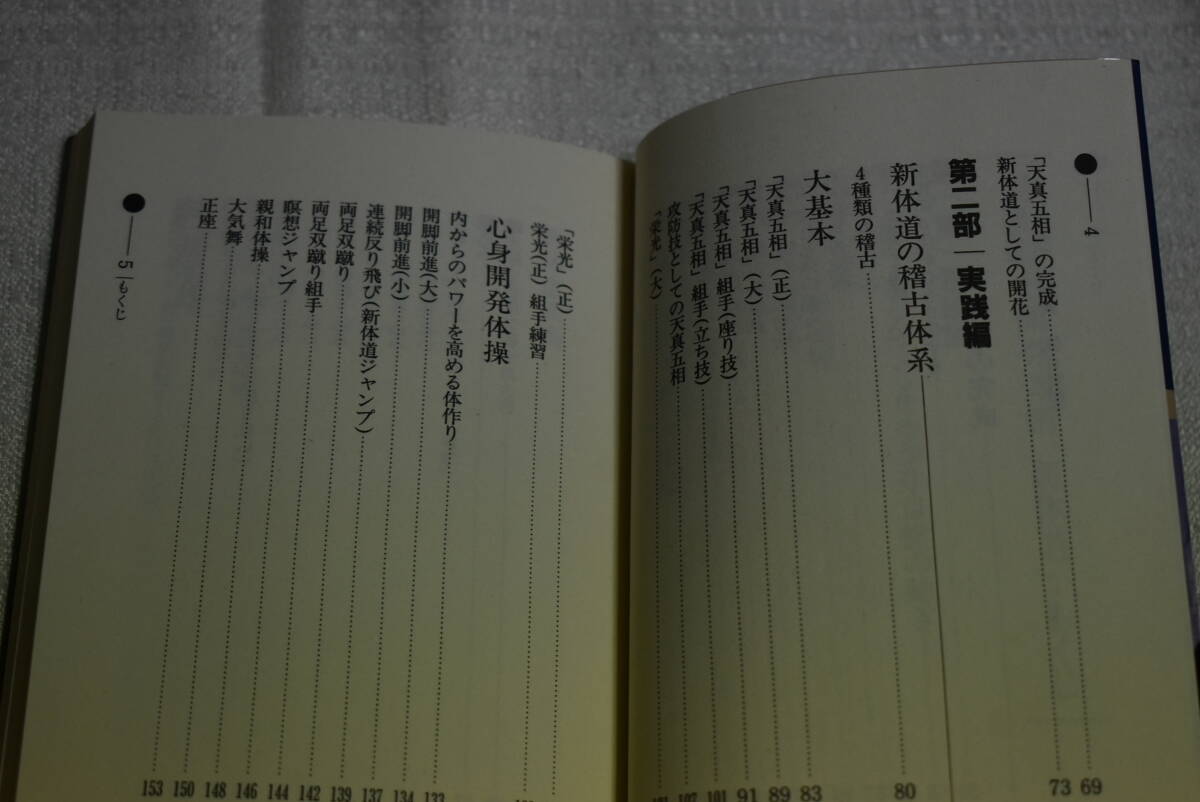 ●――4
「天真五相」の完成 69
新体道としての開花 73
第二部―実践編
新体道の稽古体系
4種類の稽古 80
大基本
「天真五相」(正) 83
「天真五相」(大) 89
「天真五相」組手(座り技) 91
「天真五相」組手(立ち技) 101
攻防技としての天真五相 107
「栄光」(大)
「栄光」(正)
栄光(正)組手練習
心身開発体操
内からのパワーを高める体作り 133
開脚前進(大) 134
開脚前進(小) 137
連続反り飛び(新体道ジャンプ) 139
両足双蹴り 142
両足双蹴り組手 144
瞑想ジャンプ 146
親和体操 148
大気舞 150
正座 153
●――5|もくじ